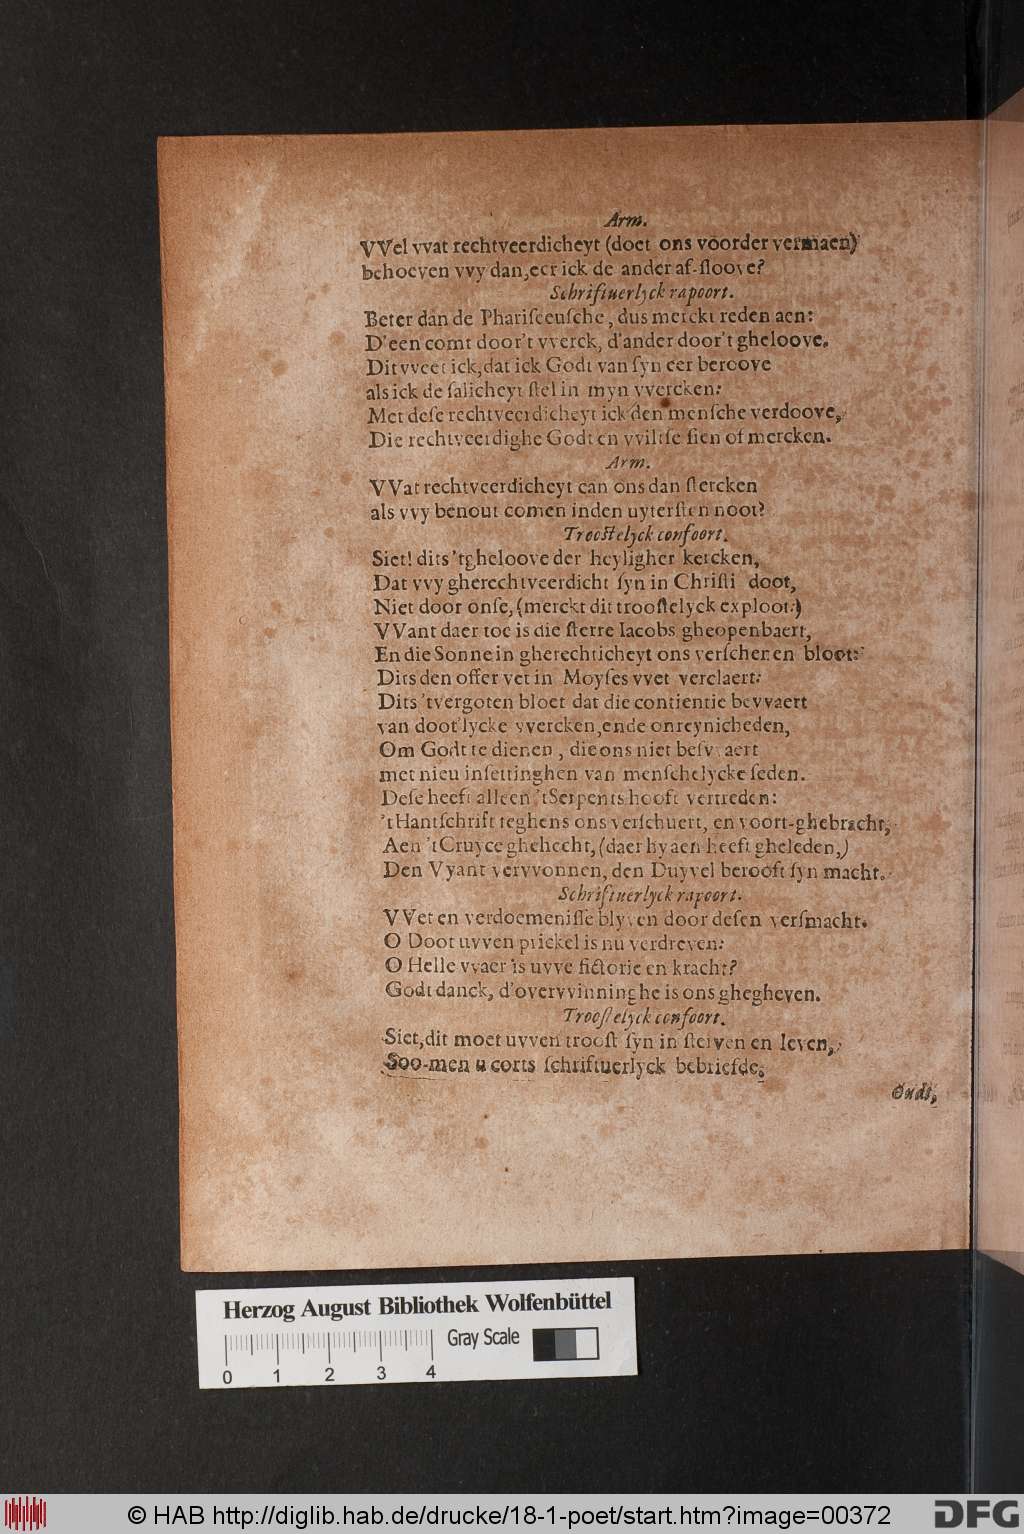 Arm.
VVel vvat rechtveerdicheyt (doet ons voorder vermaen)
behoeven vvy dan, eer ick de ander af-sloove?
Schriftuerlyck rapoort.
Beter dan de Phariseeusche, dus merckt reden aen:
D'een comt door't vverck, d'ander door't gheloove.
Dit vveet ick, dat ick Godt van syn eer beroove
als ick de salicheyt stel in myn vvercken:
Met dese rechtveerdicheyt ick den mensche verdoove,
Die rechtveerdighe Godt en vviltse sien of mercken.
Arm.
VVat rechtveerdicheyt can ons dan stercken
als vvy benout comen inden uytersten noot?
Troostelyck confoort.
Siet! dits 'tgheloove der heyligher kercken,
Dat vvy gherechtveerdicht syn in Christi doot,
Niet door onse, (merckt dit troostelyck exploot:)
VVant daer toe is die sterre Iacobs gheopenbaert,
En die Sonne in gherechticheyt ons verschenen bloot:
Dits den offer vet in Moyses vvet verclaert:
Dits 'tvergoten bloet dat die contientie bevvaert
van doot'lycke vvercken, ende onreynicheden,
Om Godt te dienen, die ons niet besvvaert
met nieu insettinghen van menschelycke seden.
Dese heeft alleen 'tSerpents hooft vertreden:
'tHantschrift teghens ons verschuert, en voort-ghebracht,
Aen 'tCruyce ghehecht, (daer hy aen heeft gheleden,)
Den Vyant vervvonnen, den Duyvel berooft syn macht.
Schriftuerlyck rapoort.
VVet en verdoemenisse blyven door desen versmacht.
O Doot uvven prickel is nu verdreven:
O Helle vvaer is uvve fictorie en kracht?
Godt danck, d'overvvinninghe is ons ghegheven.
Troostelyck confoort.
Siet, dit moet uvven troost syn in sterven en leven,
Soo-men u corts schriftuerlyck bebriefde.
Oudt,
Herzog August Bibliothek Wolfenbüttel
Gray Scale
0 1 2 3 4
© HAB http://diglib.hab.de/drucke/18-1-poet/start.htm?image=00372
DFG